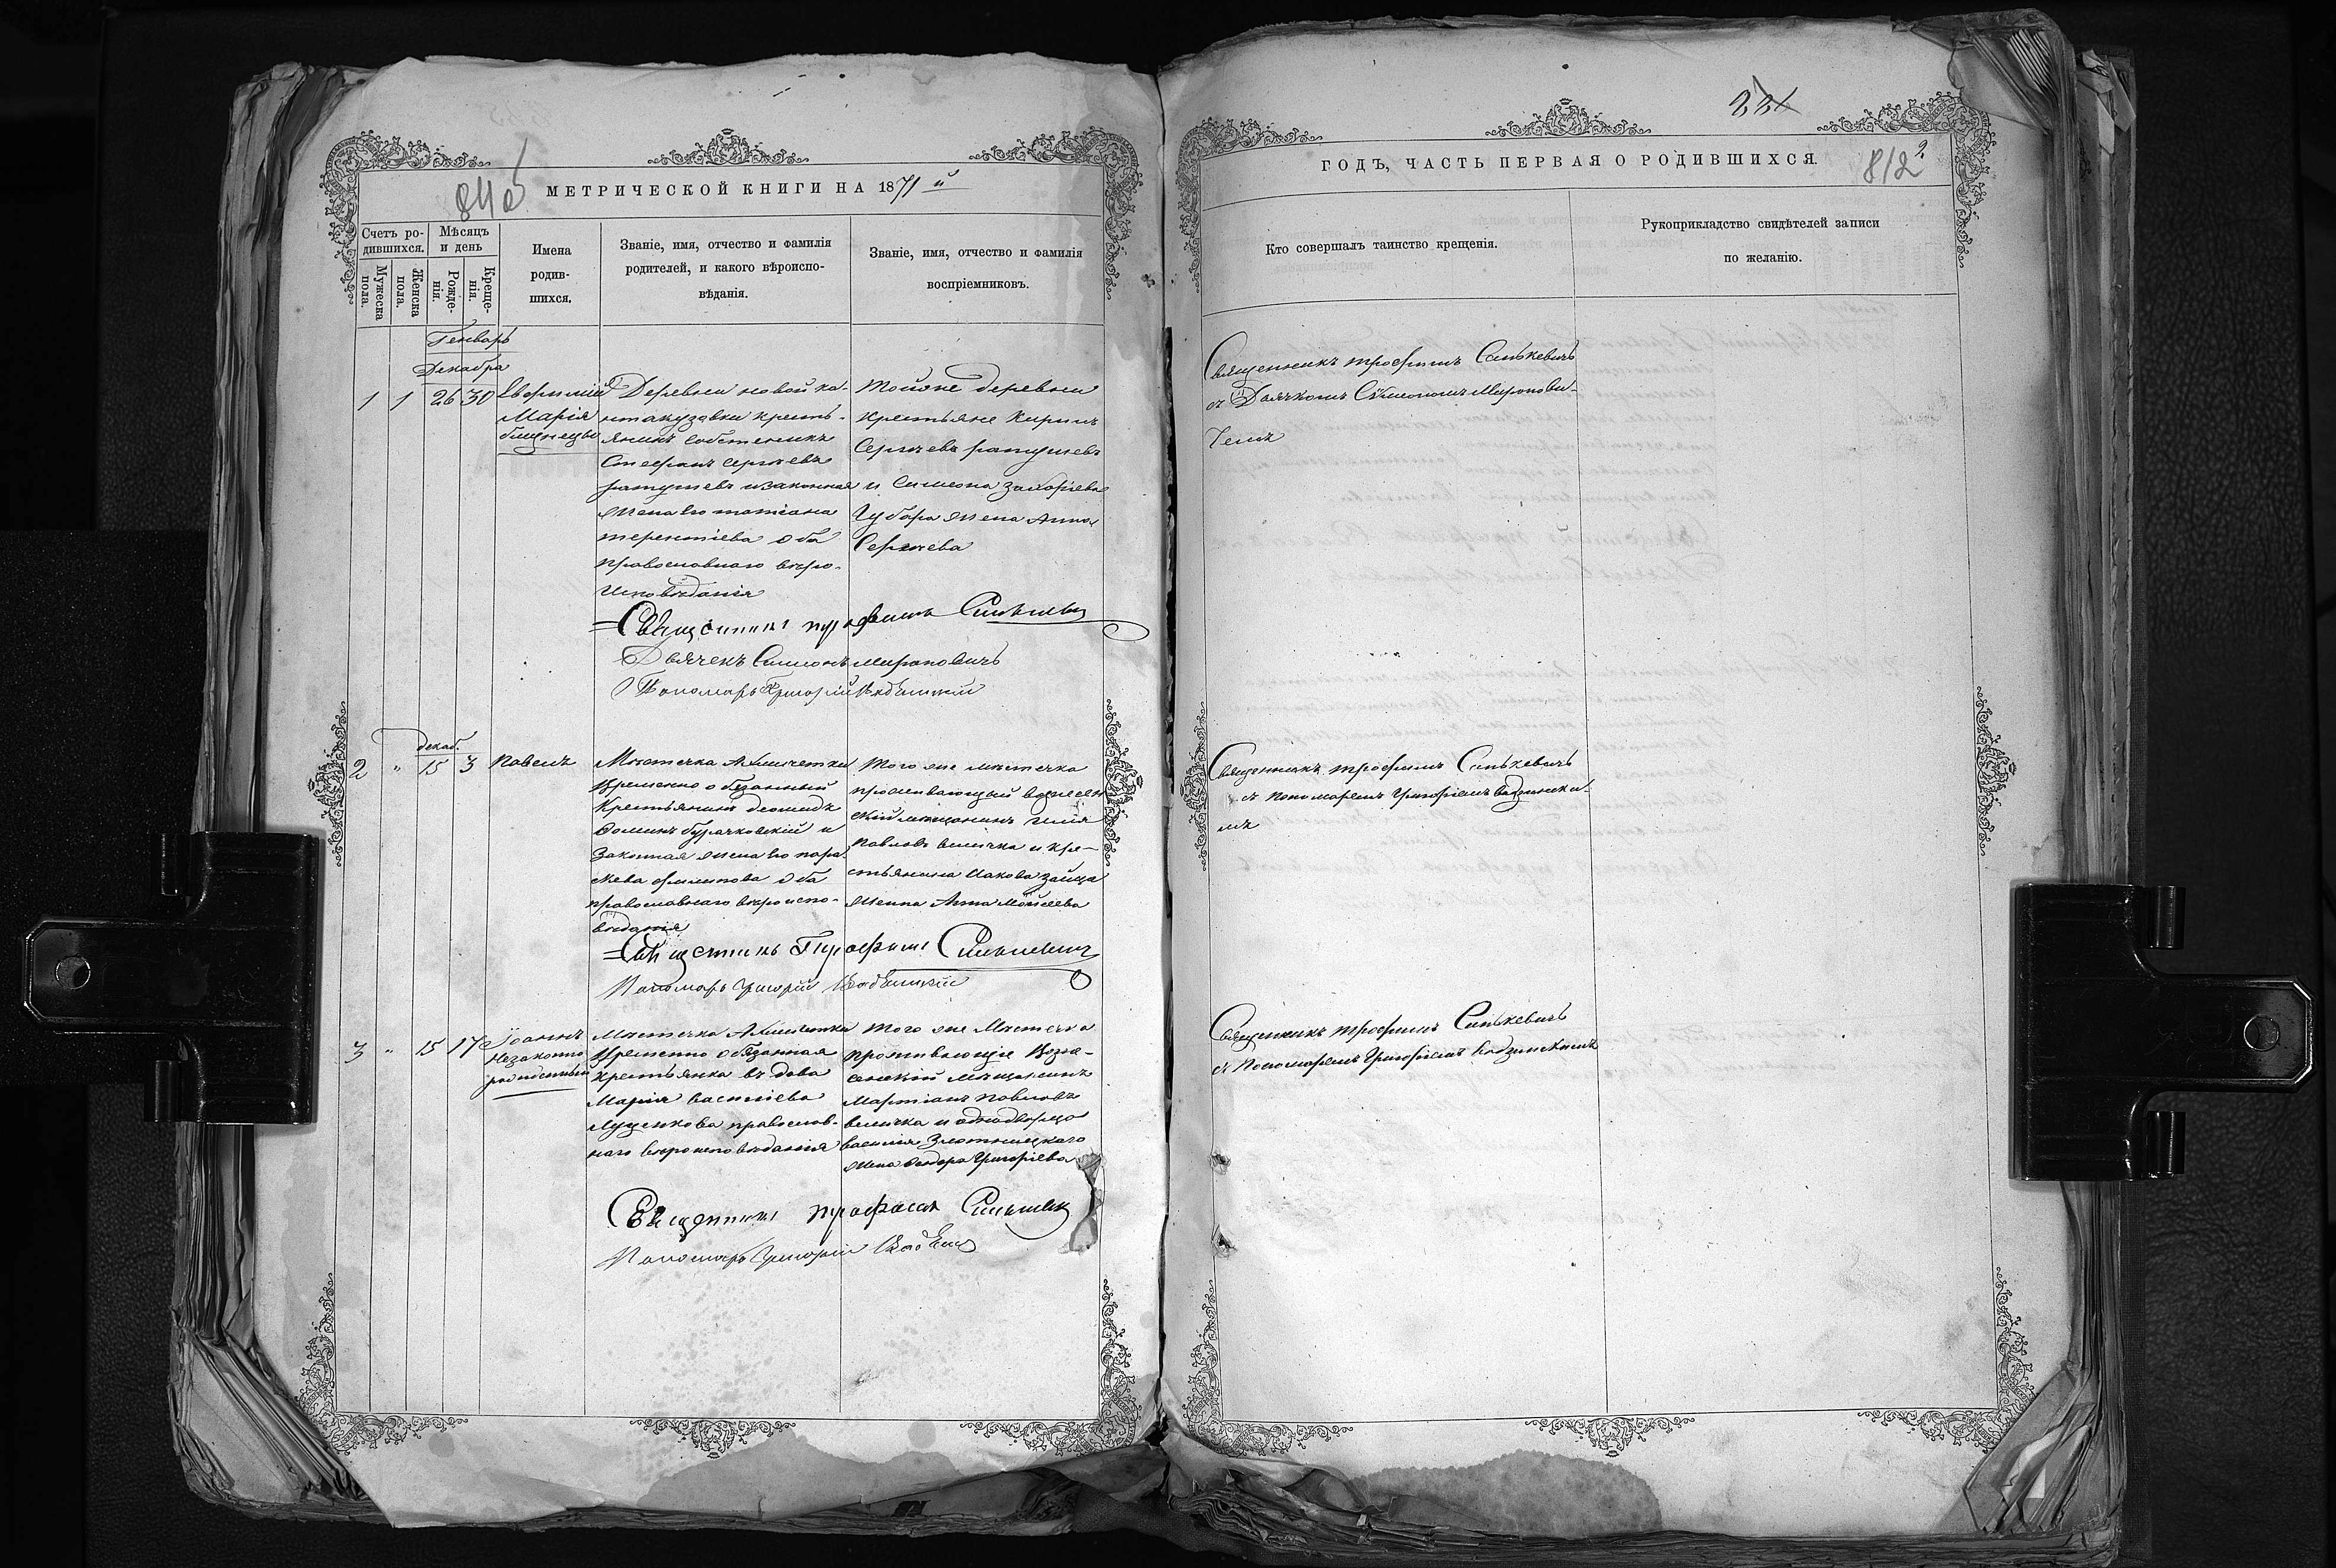 МЕТРИЧЕСКОЙ КНИГИ НА 1871 й
Счетъ ро-
дившихся.
Мѣсяцъ
и день
Мужеска пола.
Женска пола.
Рожде-
нія.
Креще-
нія.
Имена
родив-
шихся.
Званіе, имя, отчество и фамилія
родителей, и какого вѣроиспо-
вѣданія.
Званіе, имя, отчество и фамилія
воспріемниковъ.
Генварь
Декабра
1 1 26 30
Евфимій
Марія
близнецы
Деревни новой ка-
нтакузавки кресть-
янинъ собственикъ
Стефанъ Сергѣевъ
ратушевъ и законная
жена его татіана
терентіева оба
православнаго вѣро-
исповѣданія
Тойже деревни
крестьяне Кирилъ
Сергѣевъ ратушевъ
и Симеона Захаріева
Губара жена Анна
Сергѣева
Священникъ трофимъ Синькевичъ
Дьячекъ Симеонъ мироновичъ
Пономарь Григорій
декаб.
2 " 15 3
Павелъ
Мѣстечка Ахмечетки
Временно обязанный
Крестьянинъ деомидъ
фоминъ бурачковскій и
Законная жена его пара-
скева филипова оба
православнаго вѣроиспо-
вѣданія
Того же мѣстечка
проживающій вознесен
скій мѣщанинъ илія
Павловъ величка и кре-
стьянина Иакова Зайца
жена Анна Мойсеева
Священникъ Трофимъ Синькевичъ
Пономарь Григорій
3 " 15 17
Іоаннъ
незаконно
рожденный
Мѣстечка Ахмечетка
Временно обязанная
крестьянка вдова
Марія василіева
Луценкова православ-
наго вѣроисповѣданія
Того же Мѣстечка
проживающіе Возне-
сенскій мѣщанинъ
Мартіанъ Павловъ
величка и однодворца
василія Злотницкаго
жена Феодора Григоріева
Священникъ трофимъ Синькевич
Пономарь Григорій
221
ГОДЪ, ЧАСТЬ ПЕРВАЯ О РОДИВШИХСЯ.
812
Кто совершалъ таинство крещенія.
Рукоприкладство свидѣтелей записи
по желанію.
Священникъ трофимъ Синькевичъ
съ Дьячкомъ Симеономъ Миронови-
чемъ
Священникъ трофимъ Синькевичъ
съ пономаремъ Григоріемъ
мъ
Священникъ трофимъ Синькевичъ
съ Пономаремъ Григоріемъ